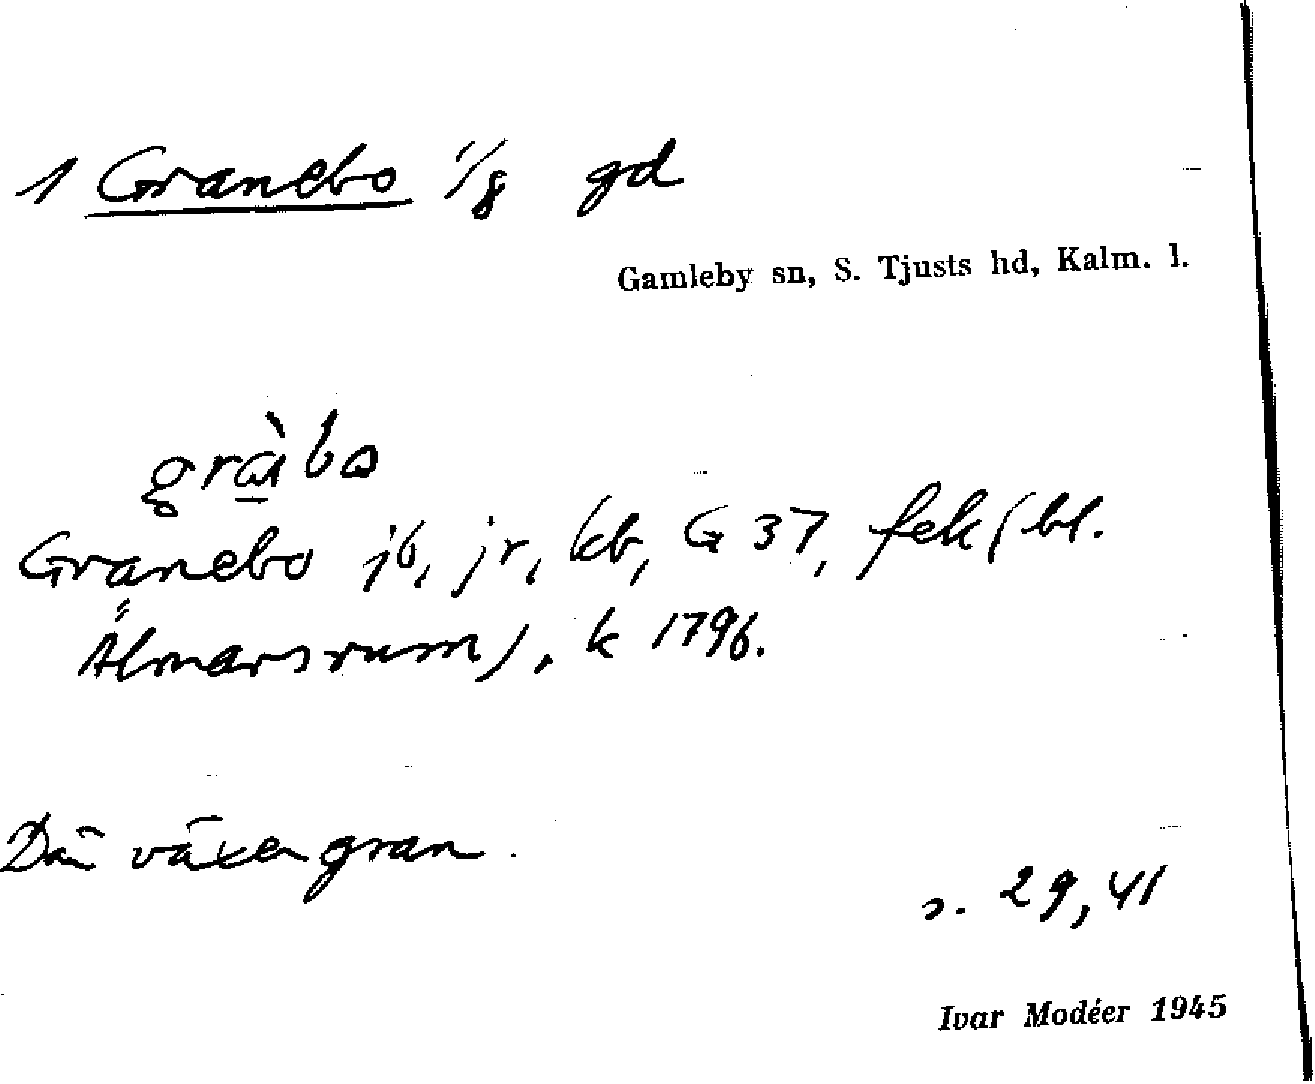 1 Granebo 1/8 gd
Gamleby sn, S. Tjusts hd, Kalm. l.
gràbo
Granebo jb, jr, kb, G 37, fek (bl.
Älmarsrum), k 1796.
Där växer gran.
s. 29, 41
Ivar Modéer 1945